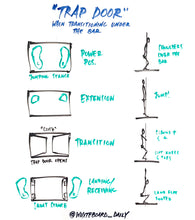 "TRAP DOOR"
WHEN TRANSITIONING UNDER
THE BAR
POWER
POS.
JUMPING STANCE
TRANSFERS
OVER THE
BAR
EXTENTION
JUMP!
"CLICK"
TRANSITION
TRAP DOOR OPENS
LANDING/
RECEIVING
SQUAT STANCE
LAND FLAT
FOOTED
@WHITEBOARD_DAILY